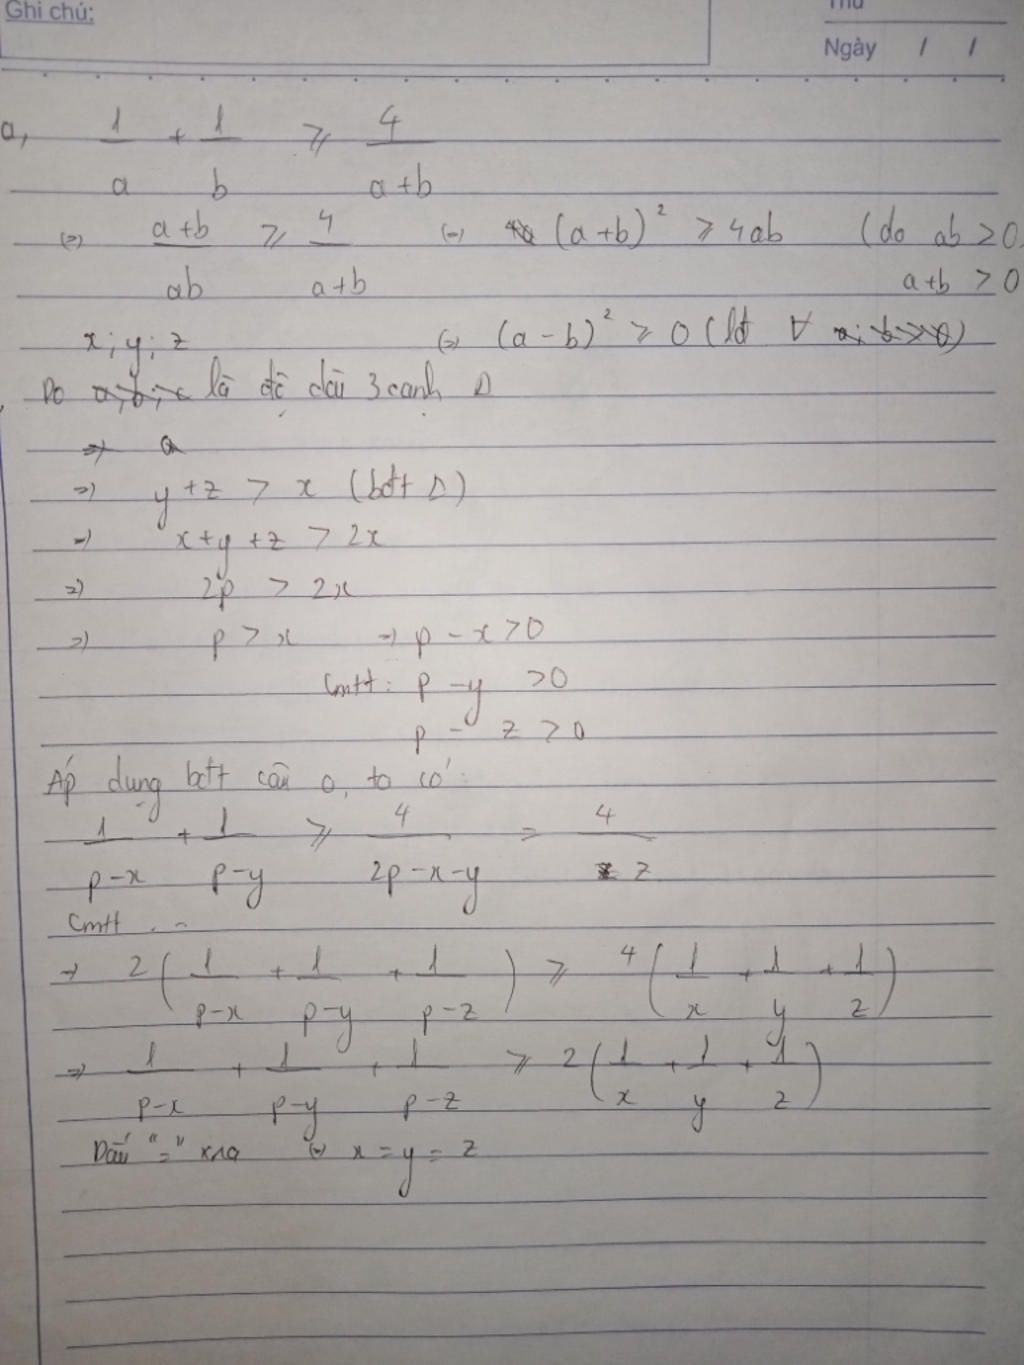 Ghi chú:
Thứ
Ngày / /
a, 1/a + 1/b ≥ 4/(a+b)
(=) (a+b)/ab ≥ 4/(a+b) (=) (a+b)² ≥ 4ab (do ab > 0,
a+b > 0
x; y; z (=) (a-b)² ≥ 0 (lđ ∀ a; b > 0)
Do a; b; c là độ dài 3 cạnh Δ
=) a
=) y+z > x (bđt Δ)
=) x+y+z > 2x
=) 2p > 2x
=) p > x =) p - x > 0
Cmtt: p - y > 0
p - z > 0
Áp dụng bđt câu a, ta có:
1/(p-x) + 1/(p-y) ≥ 4/(2p-x-y) = 4/z
Cmtt . -
=) 2(1/(p-x) + 1/(p-y) + 1/(p-z)) ≥ 4(1/x + 1/y + 1/z)
=) 1/(p-x) + 1/(p-y) + 1/(p-z) ≥ 2(1/x + 1/y + 1/z)
Dấu "=" xra (=) x = y = z